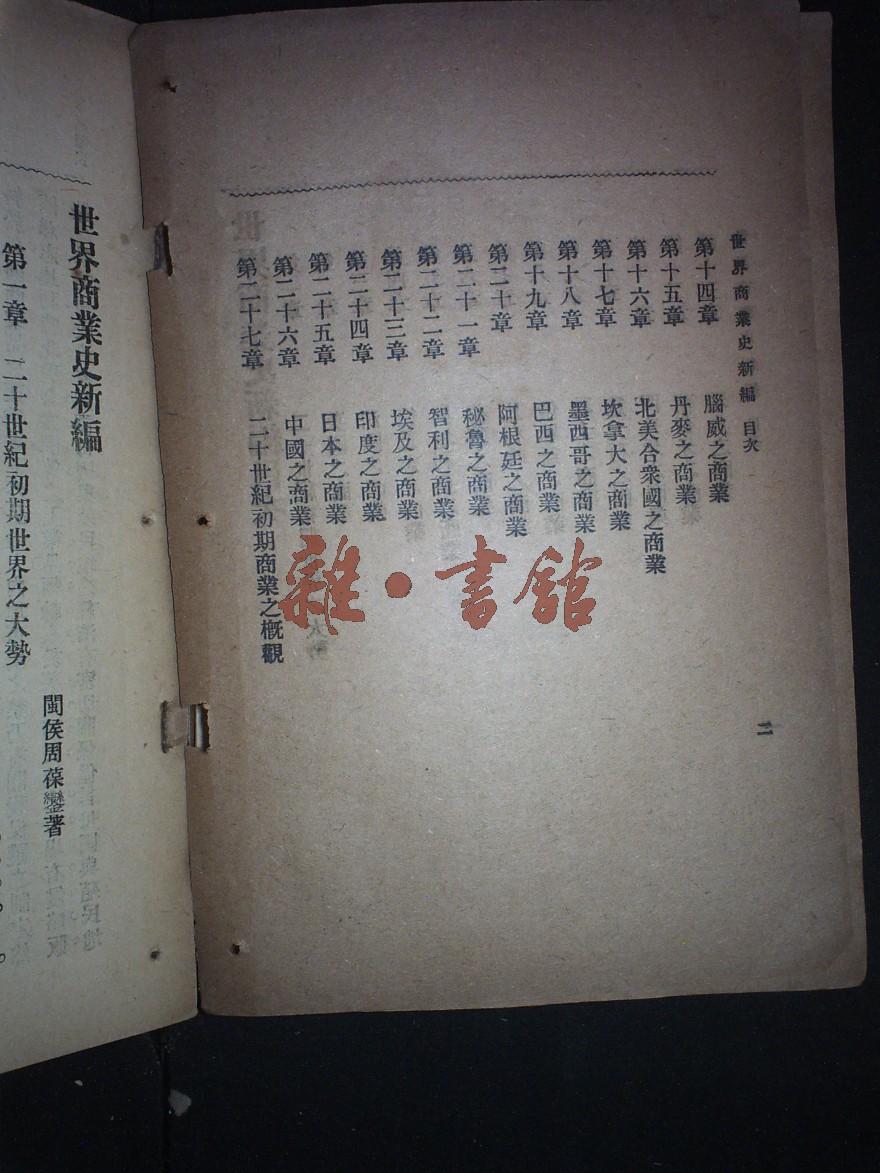 世界商業史新編 目次
二
第十四章 腦威之商業
第十五章 丹麥之商業
第十六章 北美合衆國之商業
第十七章 坎拿大之商業
第十八章 墨西哥之商業
第十九章 巴西之商業
第二十章 阿根廷之商業
第二十一章 秘魯之商業
第二十二章 智利之商業
第二十三章 埃及之商業
第二十四章 印度之商業
第二十五章 日本之商業
第二十六章 中國之商業
第二十七章 二十世紀初期商業之概觀
雜·書館
世界商業史新編
閩侯周葆鑾著
第一章 二十世紀初期世界之大勢